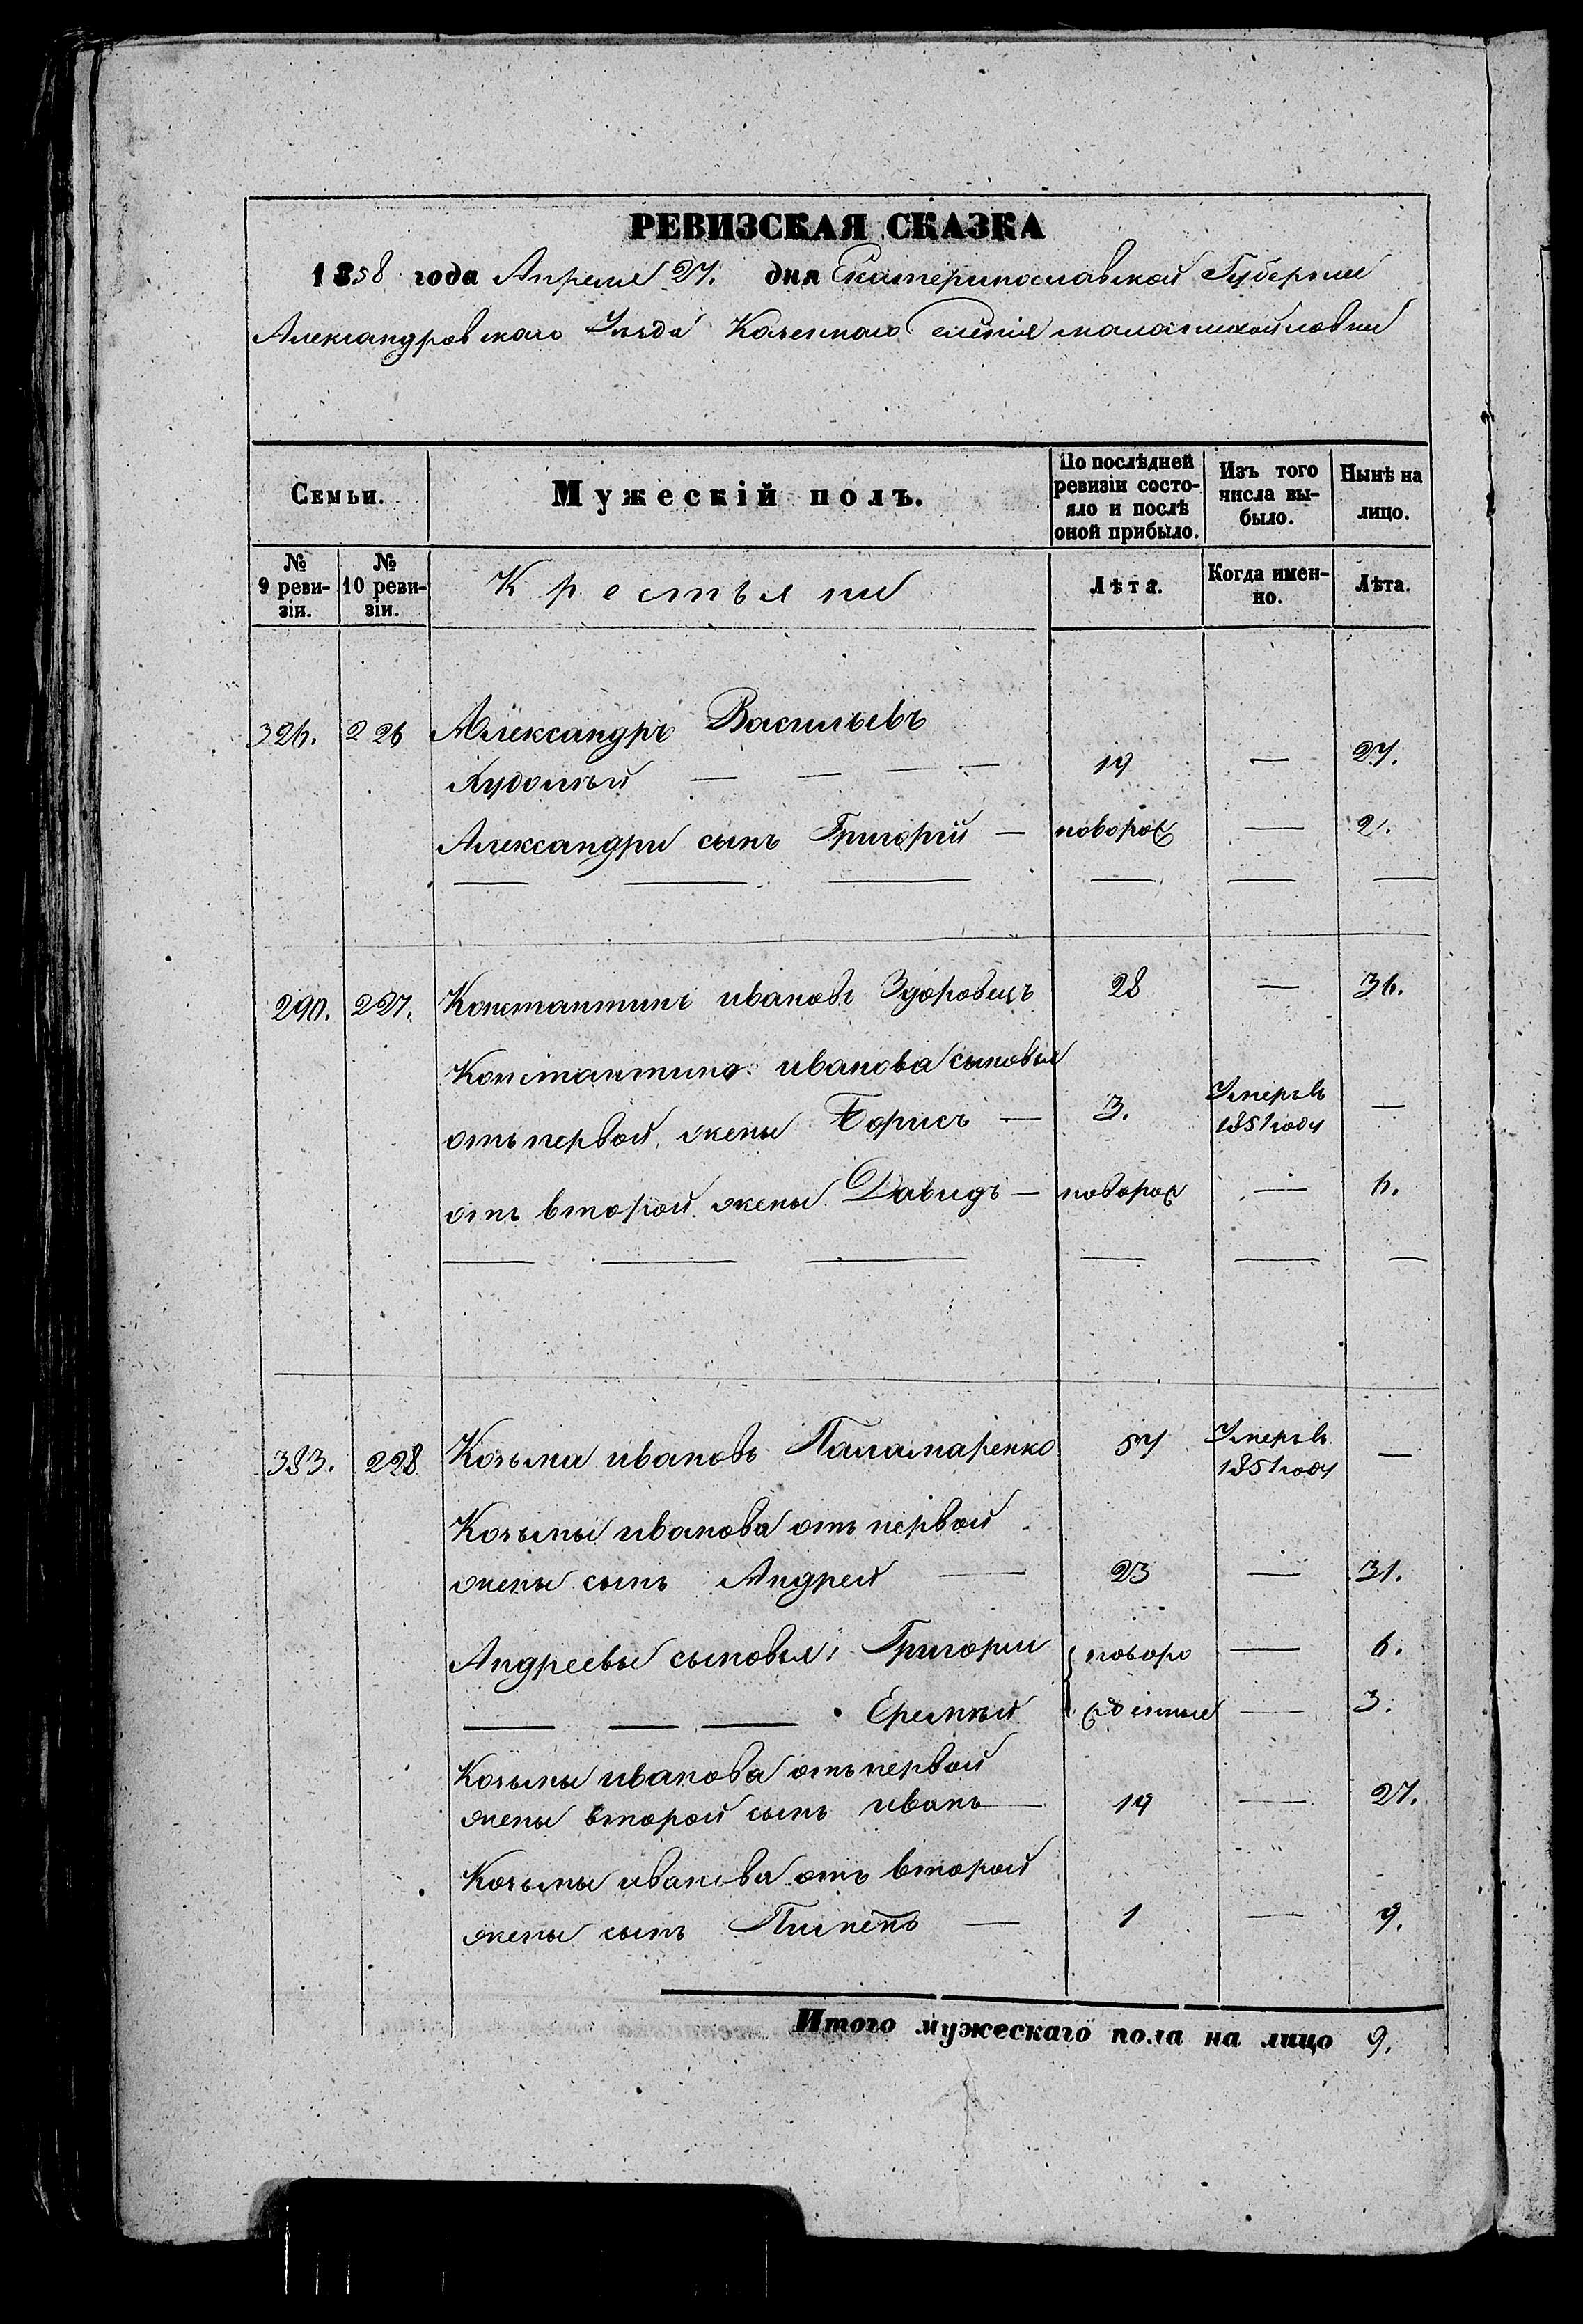 РЕВИЗСКАЯ СКАЗКА
1858 года Апреля 27. дня Екатеринославской Губернии
Александровскаго Уезда Казеннаго селения малой михайловки
Семьи. Мужескій полъ. По послѣдней ревизіи состояло и послѣ оной прибыло. Изъ того числа выбыло. Нынѣ на лицо.
№ 9 ревизіи. № 10 ревизіи. Крестьяни Лѣта. Когда именно. Лѣта.
326. 226 Александръ Васильевъ
Худолѣй — — — — 19 — 27.
Александри сынъ Григорій — новорож — 2.
290. 227. Константинъ ивановъ Здоровецъ 28 — 36.
Константина иванова сыновья
отъ первой жены Борисъ — 3. Умеръ въ 1851 году —
отъ второй жены Давидъ — новорож — 6.
383. 228 Козьма ивановъ Паламаренко 57 Умеръ въ 1851 году —
Козьмы иванова отъ первой
жены сынъ Андрей — 23 — 31.
Андреевы сыновья: Григории новоро — 6.
— — — Еремѣй жденные — 3.
Козьмы иванова отъ первой
жены второй сынъ иванъ — 19 — 27.
Козьмы иванова отъ второй
жены сынъ Пименъ — 1 — 9.
Итого мужескаго пола на лицо 9.